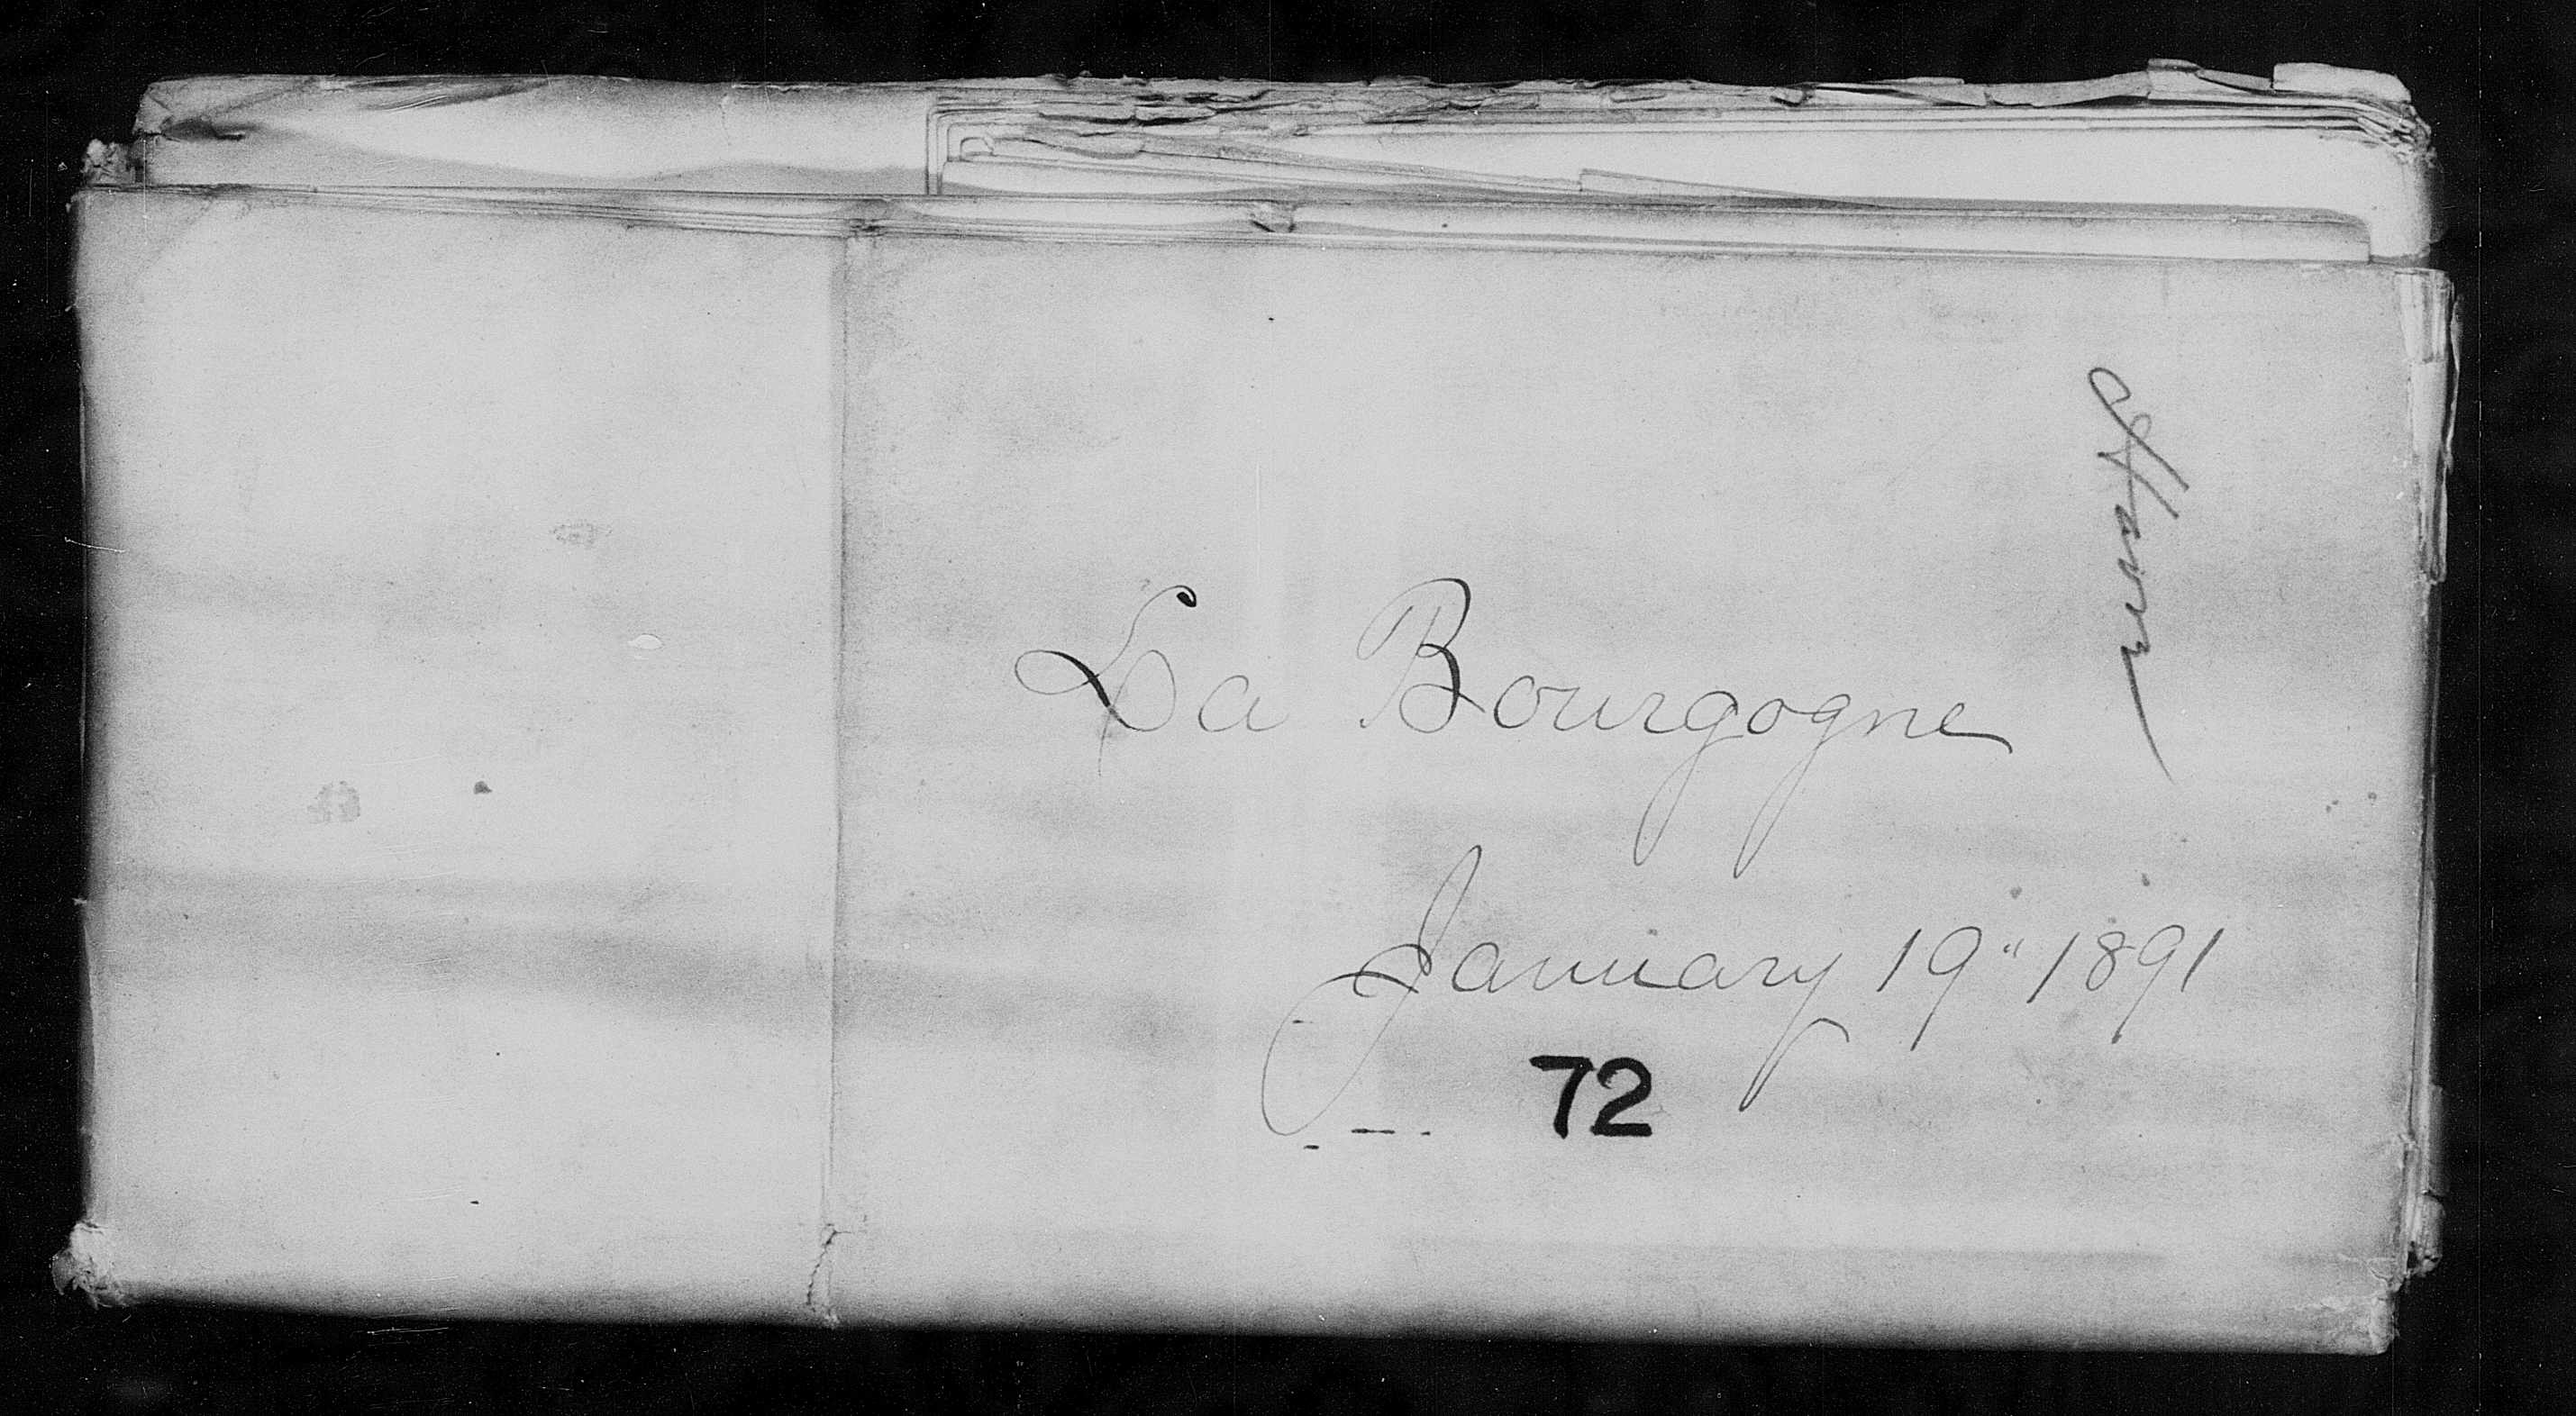 Havre
La Bourgogne
January 19" 1891
72